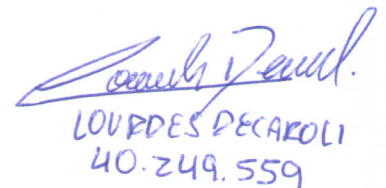 LOURDES DECAROLI
40.249.559